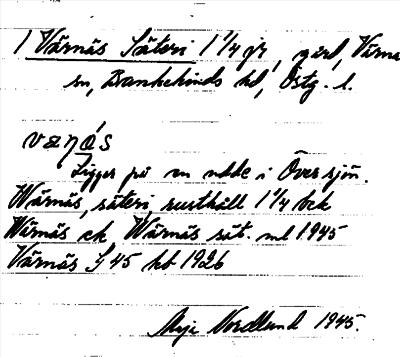 1 Värnäs Säteri 1 1/4 jr, gård, Värna
sn, Bankekinds hd, Östg. l.
Ligger på en udde i Översjön.
Wärnäs, säteri, rusthåll 1 1/4 bek
Wärnäs ek Wärnäs sät. ml 1945
Värnäs Sj 45 kb 1926
Nordlund 1945.